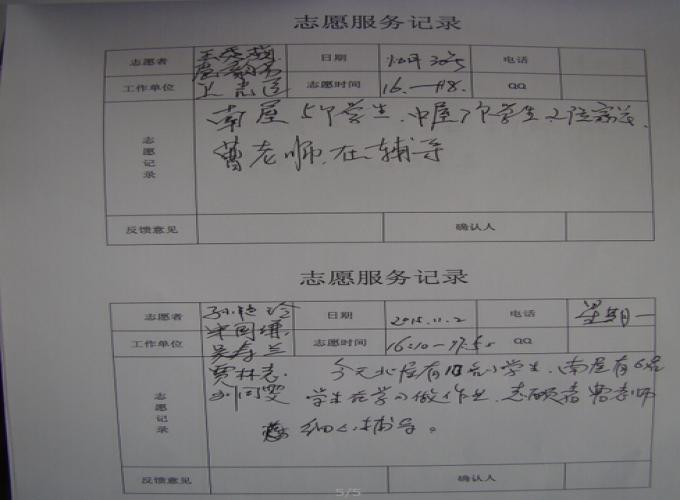 志愿服务记录
志愿者 日期 30号 电话
工作单位 志愿时间 16.—18. QQ
南屋5个学生.中屋7个学生.2位家长.
志愿记录
曹老师.在辅导
反馈意见 确认人
志愿服务记录
志愿者 孙 玲 日期 2015.11.2 电话 星期一
工作单位 吴寿兰 志愿时间 16:10—17:50 QQ
贾林志. 今天北屋有10名小学生.南屋有6名
志愿记录 学生在学习做作业.志愿者曹老师
细心辅导。
反馈意见 确认人
5/5